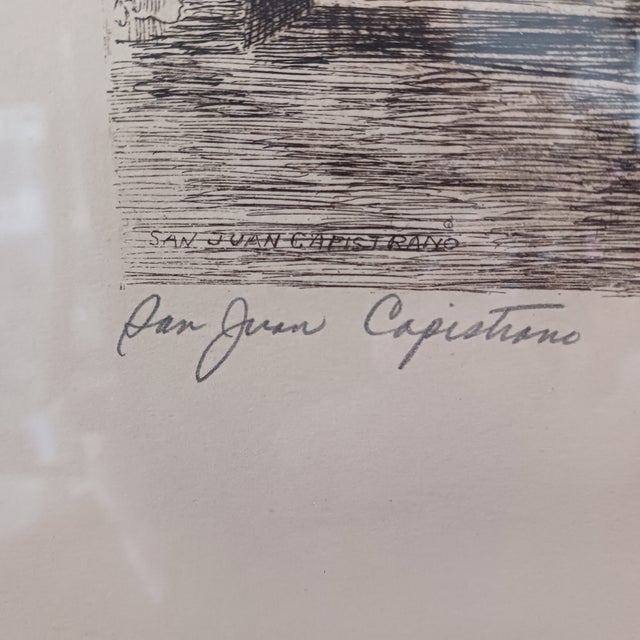 SAN JUAN CAPISTRANO
San Juan Capistrano